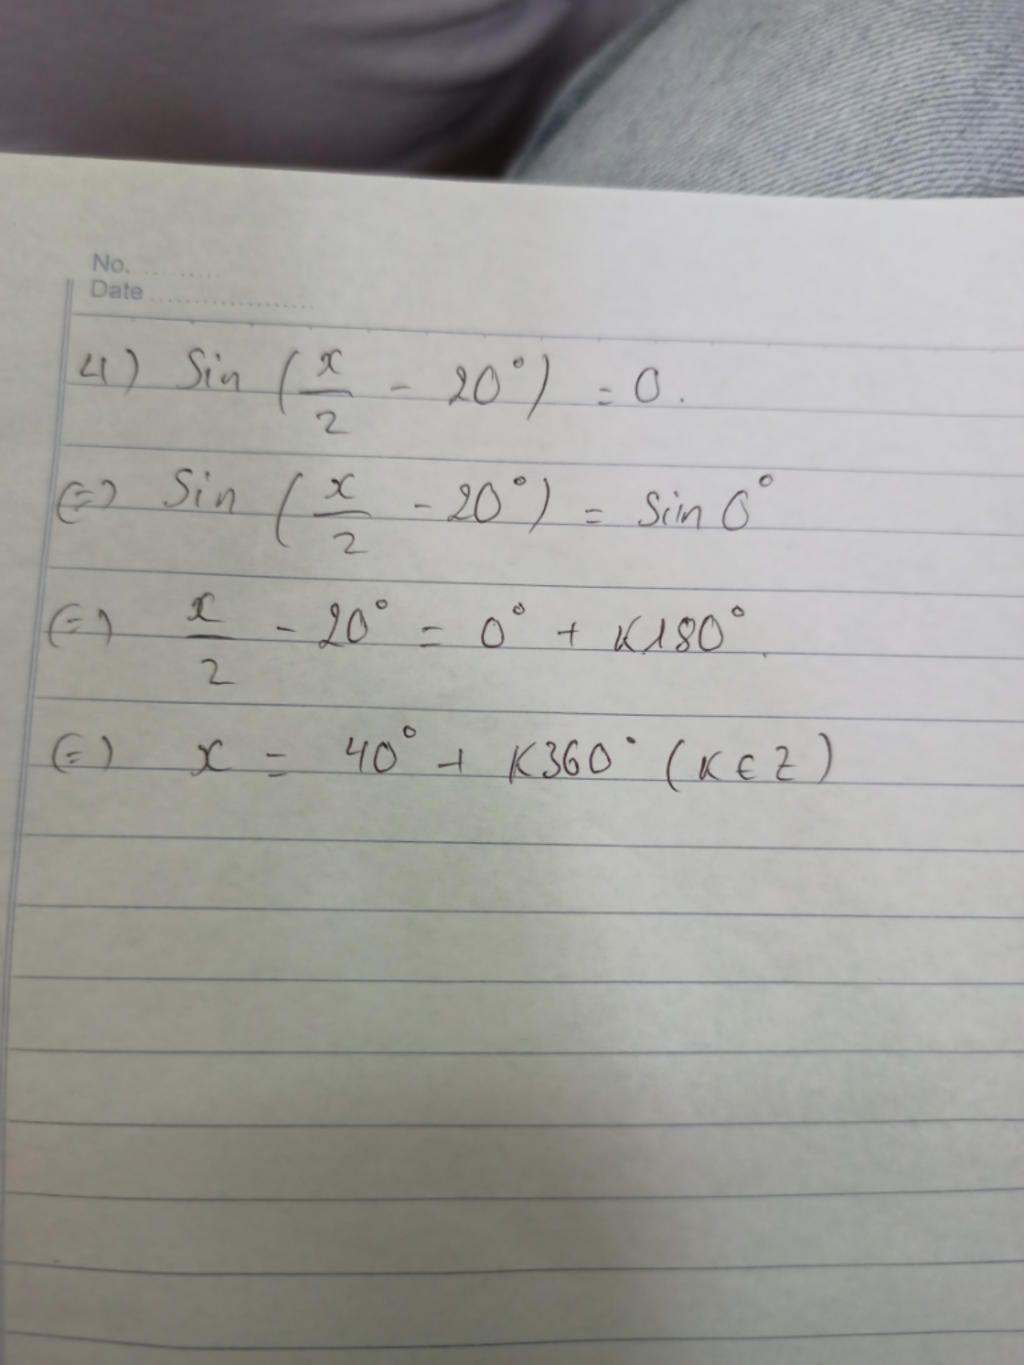 No. ..........
Date ....................
4) Sin (x/2 - 20°) = 0.
(=) Sin (x/2 - 20°) = Sin 0°
(=) x/2 - 20° = 0° + K180°.
(=) x = 40° + K360° (K ∈ Z)